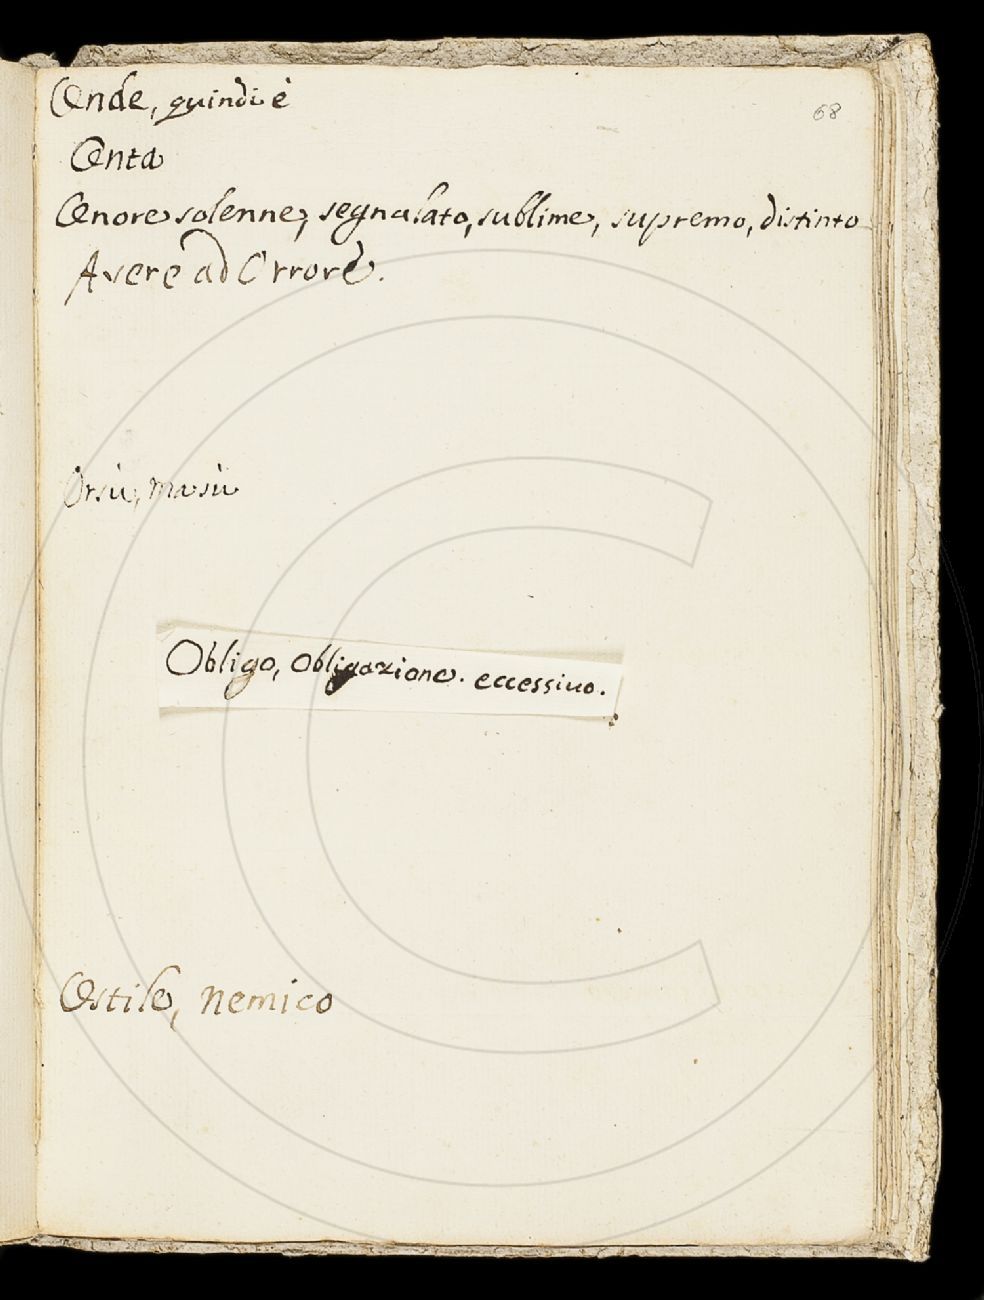 Onde, quindi è
68
Onta
Onore solenne, segnalato, sublime, supremo, distinto
Avere ad Orrore.
Orsù, ma sù
Obligo, Obligazione. eccessivo.
Ostile, nemico